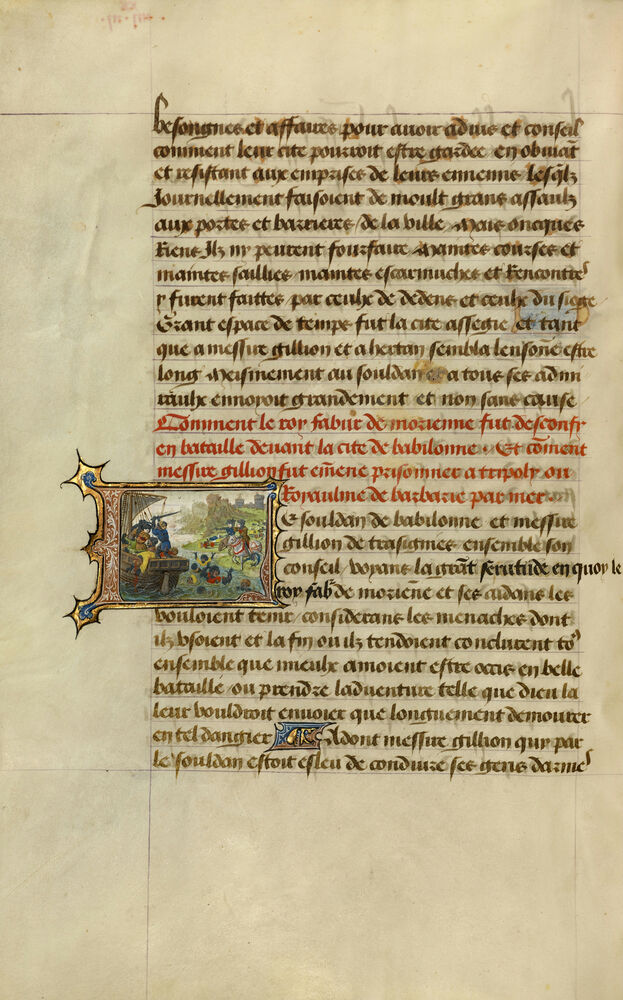 besongnes et affaires pour auoir aduis et conseil
comment leur cite pourroit estre gardee en obuiāt
et resistant aux emprises de leurs ennemis lesq̄lz
Journellement faisoient de moult grans assaulz
aux portes et barrieres de la ville Mais oncques
Riens Ilz ny peurent fourfaire Maintes courses et
maintes saillies maintes escarmuches et Rencontres
y furent faittes par ceulx de dedens et ceulx du siege
Grant espace de temps fut la cite assegie et tant
que a messire gillion et a hertan sembla leur sonē estre
long Meismement au souldan et a tous ses admi
raulx ennuyoit grandement et non sans cause
Comment le roy fabur de morienne fut desconfy
en bataille deuant la cite de babilonne. Et cōment
messire gillion fut em̄ene prisonnier a tripoly ou
Royaulme de barbarie par mer
Le souldan de babilonne et messire
gillion de trasignies ensemble son
conseil voyans la grāt seruitude en quoy le
roy fabr̄ de moriēne et ses aidans les
vouloient tenir considerans les menaches dont
ilz vsoient et la fin ou ilz tendoient conclurent to9
ensemble que mieulx amoient estre occis en belle
bataille ou prendre laduenture telle que dieu la
leur vouldroit enuoier que longuement demourer
en tel dangier Adont messire gillion quy par
le souldan estoit esleu de conduire ses gens darmes